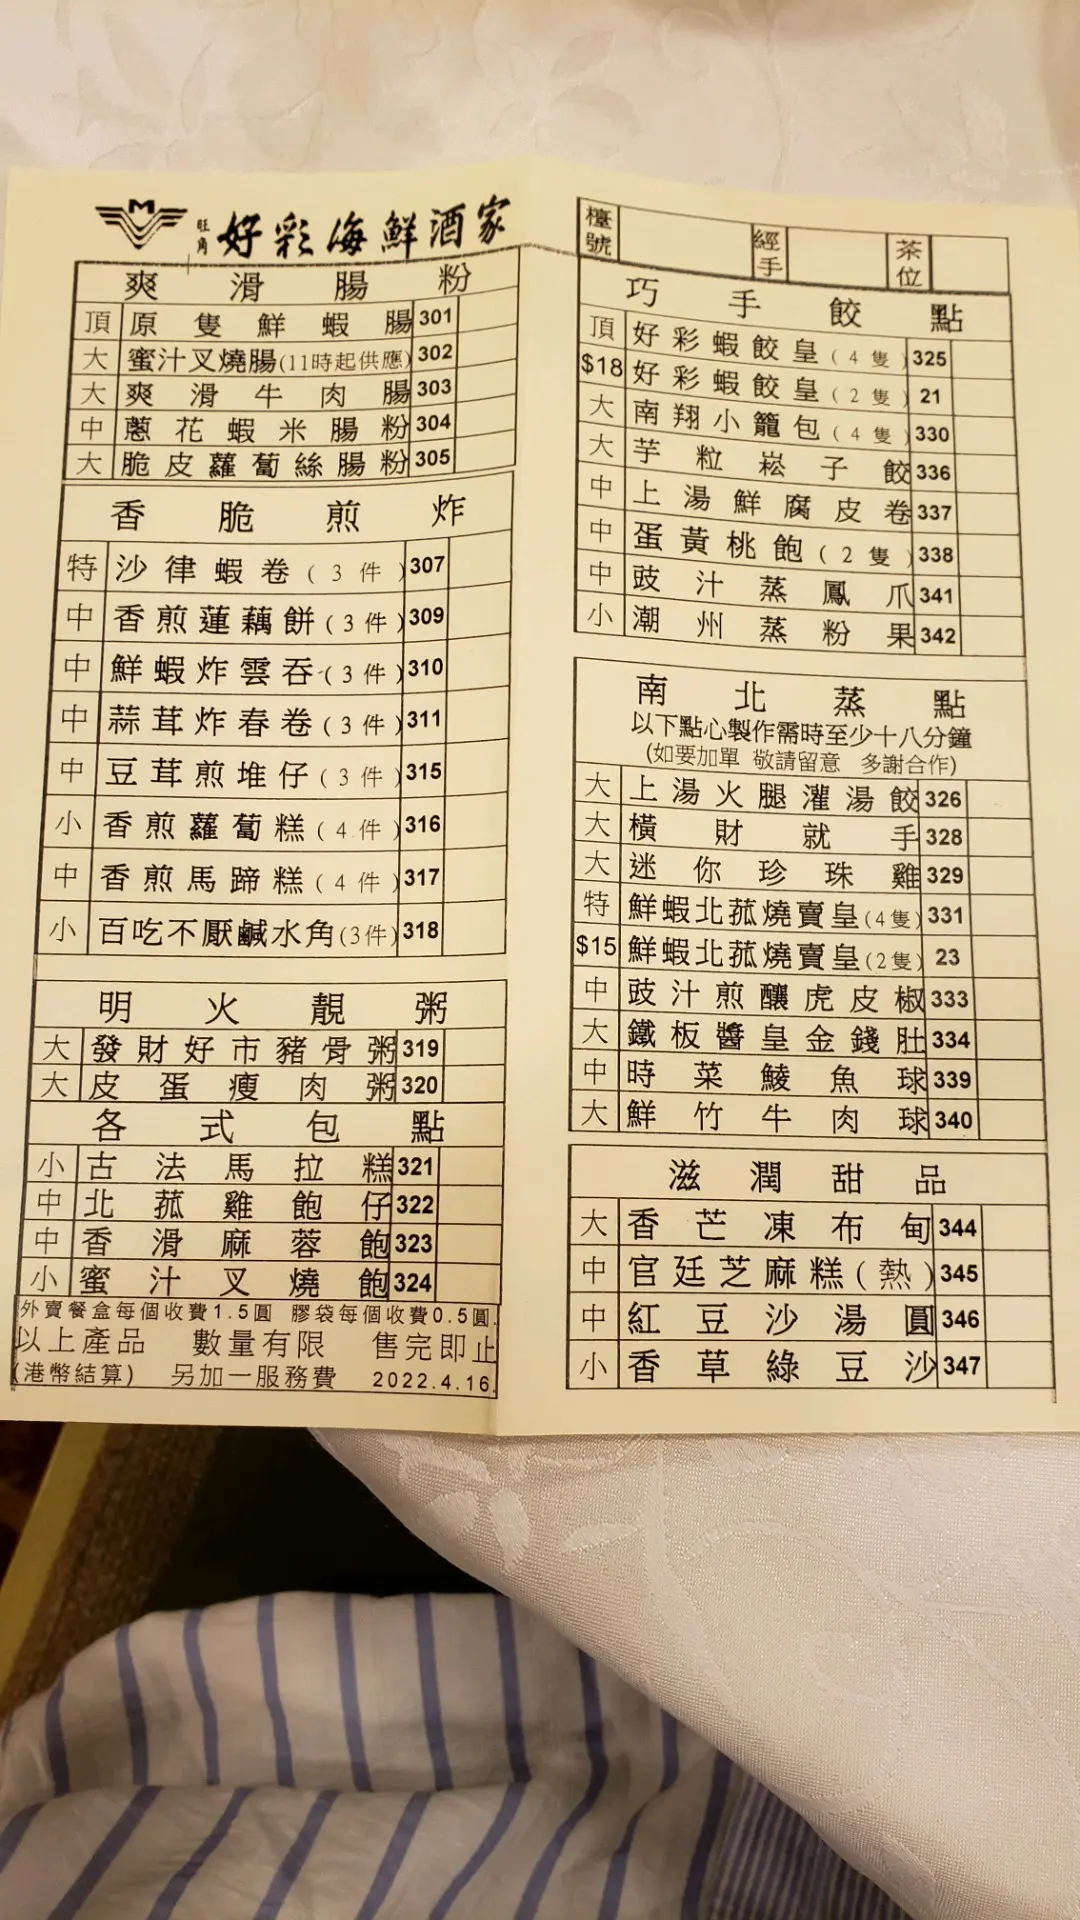 M
旺角 好彩海鮮酒家
爽滑腸粉
頂 原隻鮮蝦腸 301
大 蜜汁叉燒腸(11時起供應) 302
大 爽滑牛肉腸 303
中 蔥花蝦米腸粉 304
大 脆皮蘿蔔絲腸粉 305
香脆煎炸
特 沙律蝦卷(3件) 307
中 香煎蓮藕餅(3件) 309
中 鮮蝦炸雲吞(3件) 310
中 蒜茸炸春卷(3件) 311
中 豆茸煎堆仔(3件) 315
小 香煎蘿蔔糕(4件) 316
中 香煎馬蹄糕(4件) 317
小 百吃不厭鹹水角(3件) 318
明火靚粥
大 發財好市豬骨粥 319
大 皮蛋瘦肉粥 320
各式包點
小 古法馬拉糕 321
中 北菰雞飽仔 322
中 香滑麻蓉飽 323
小 蜜汁叉燒飽 324
外賣餐盒每個收費1.5圓 膠袋每個收費0.5圓.
以上產品 數量有限 售完即止
(港幣結算) 另加一服務費 2022.4.16.
檯號 經手 茶位
巧手餃點
頂 好彩蝦餃皇(4隻) 325
$18 好彩蝦餃皇(2隻) 21
大 南翔小籠包(4隻) 330
大 芋粒崧子餃 336
中 上湯鮮腐皮卷 337
中 蛋黃桃飽(2隻) 338
中 豉汁蒸鳳爪 341
小 潮州蒸粉果 342
南北蒸點
以下點心製作需時至少十八分鐘
(如要加單 敬請留意 多謝合作)
大 上湯火腿灌湯餃 326
大 橫財就手 328
大 迷你珍珠雞 329
特 鮮蝦北菰燒賣皇(4隻) 331
$15 鮮蝦北菰燒賣皇(2隻) 23
中 豉汁煎釀虎皮椒 333
大 鐵板醬皇金錢肚 334
中 時菜鯪魚球 339
大 鮮竹牛肉球 340
滋潤甜品
大 香芒凍布甸 344
中 官廷芝麻糕(熱) 345
中 紅豆沙湯圓 346
小 香草綠豆沙 347